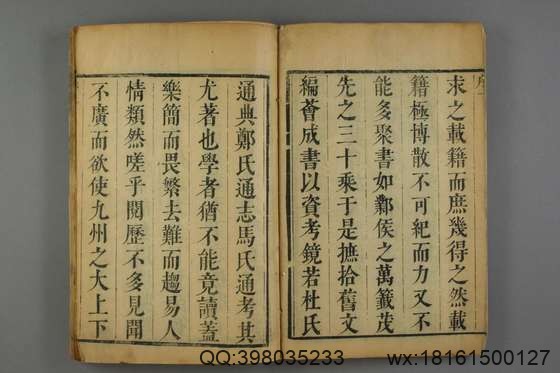 求之載籍而庶幾得之然載
籍極博散不可紀而力又不
能多聚書如鄴侯之萬籤茂
先之三十乘于是摭拾舊文
編薈成書以資考鏡若杜氏
通典鄭氏通志馬氏通考其
尤著也學者猶不能竟讀蓋
樂簡而畏繁去難而趨易人
情類然嗟乎閱歷不多見聞
不廣而欲使九州之大上下
QQ:398035233
wx:18161500127